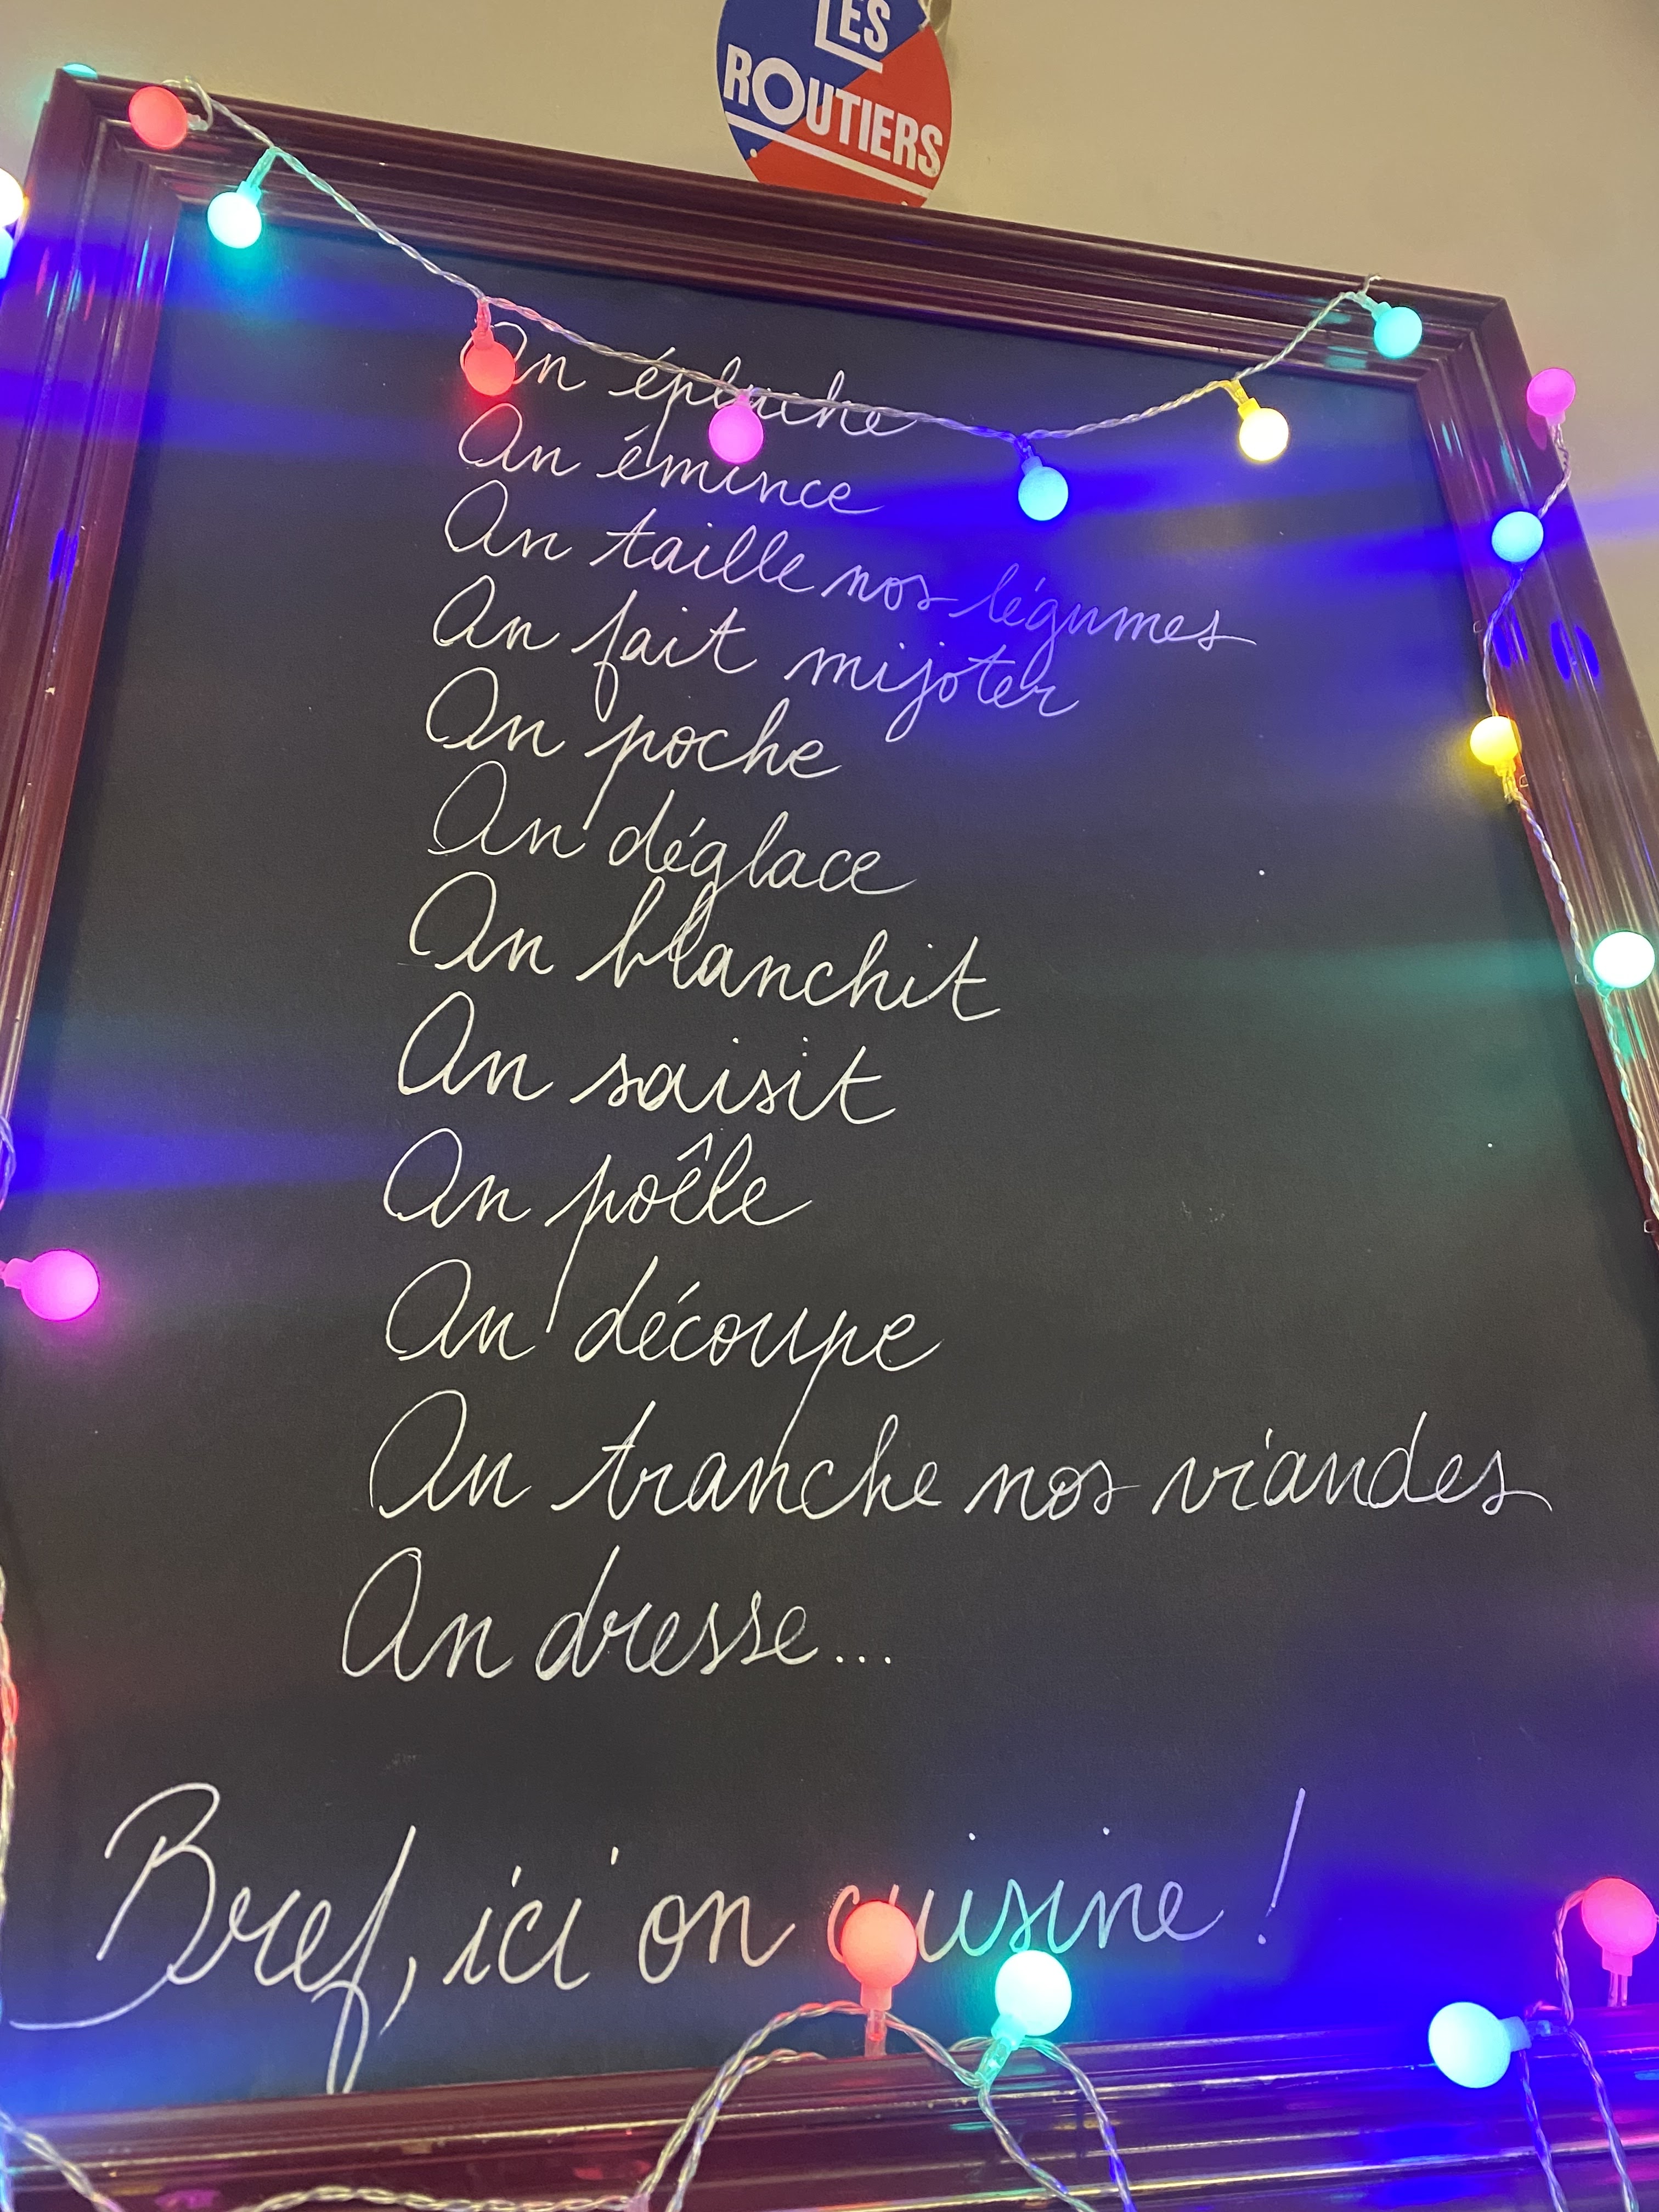 LES
ROUTIERS
On épluche
On émince
On taille nos légumes
On fait mijoter
On poche
On déglace
On blanchit
On saisit
On poêle
On découpe
On tranche nos viandes
On dresse...
Bref, ici on cuisine !